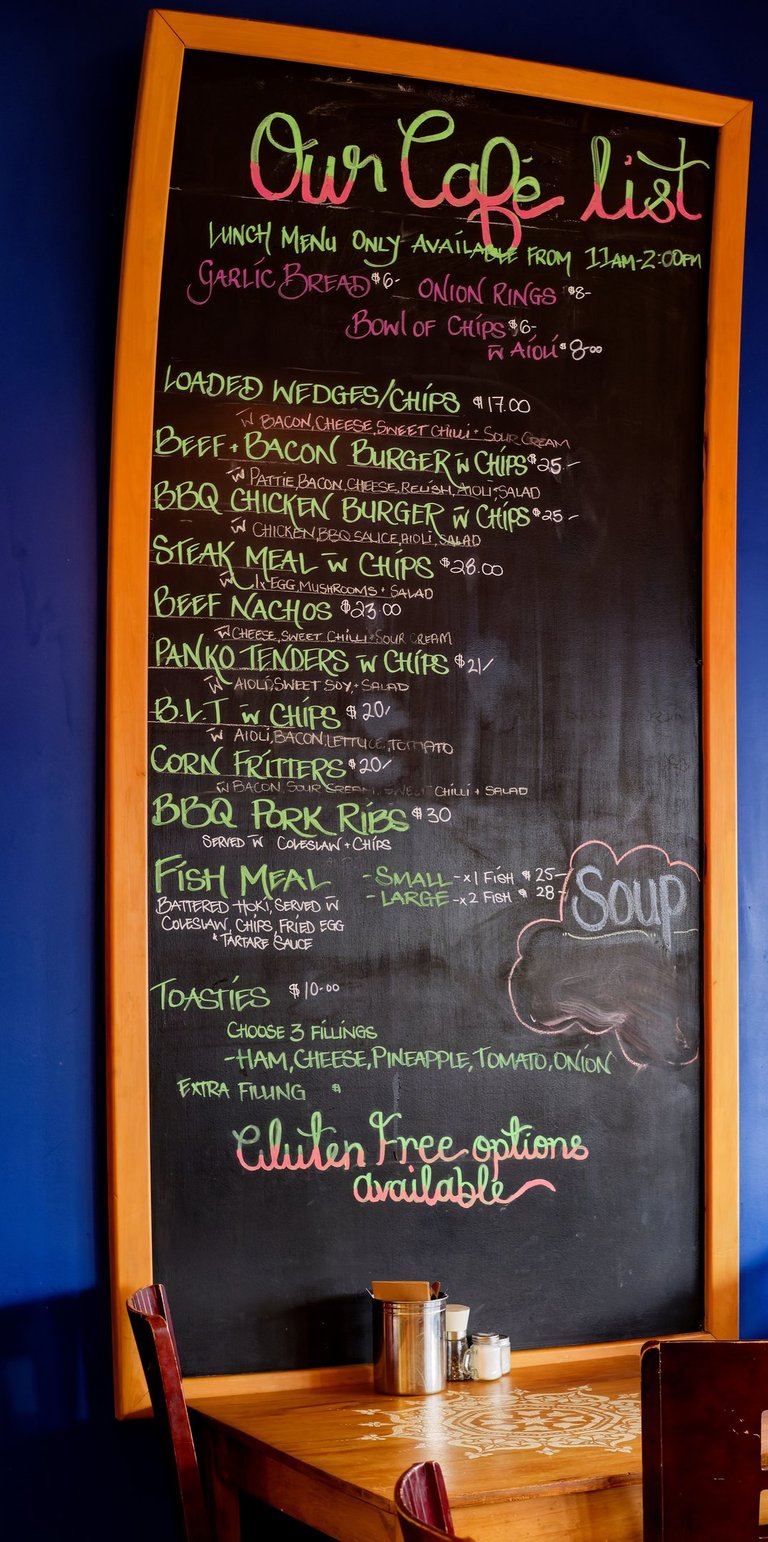 Our Café list
LUNCH MENU ONLY AVAILABLE FROM 11AM-2:00PM
GARLIC BREAD $6- ONION RINGS $8-
BOWL OF CHIPS $6-
W̄ AIOLI $8-00
LOADED WEDGES/CHIPS $17.00
W̄ BACON, CHEESE, SWEET CHILLI + SOUR CREAM
BEEF + BACON BURGER W̄ CHIPS $25-
W̄ PATTIE, BACON, CHEESE, RELISH, AIOLI, SALAD
BBQ CHICKEN BURGER W̄ CHIPS $25-
W̄ CHICKEN, BBQ SAUCE, AIOLI, SALAD
STEAK MEAL W̄ CHIPS $28.00
W̄ 1x EGG, MUSHROOMS + SALAD
BEEF NACHOS $23.00
W̄ CHEESE, SWEET CHILLI + SOUR CREAM
PANKO TENDERS W̄ CHIPS $21/
W̄ AIOLI, SWEET SOY, + SALAD
B.L.T W̄ CHIPS $20/
W̄ AIOLI, BACON, LETTUCE, TOMATO
CORN FRITTERS $20/
W̄ BACON, SOUR CREAM, SWEET CHILLI + SALAD
BBQ PORK RIBS $30
SERVED W̄ COLESLAW + CHIPS
FISH MEAL - SMALL - x1 FISH $25-
- LARGE - x2 FISH $28-
BATTERED HOKI, SERVED W̄
COLESLAW, CHIPS, FRIED EGG
+ TARTARE SAUCE
Soup
TOASTIES $10-00
CHOOSE 3 FILLINGS
- HAM, CHEESE, PINEAPPLE, TOMATO, ONION
EXTRA FILLING $
Gluten Free options
available